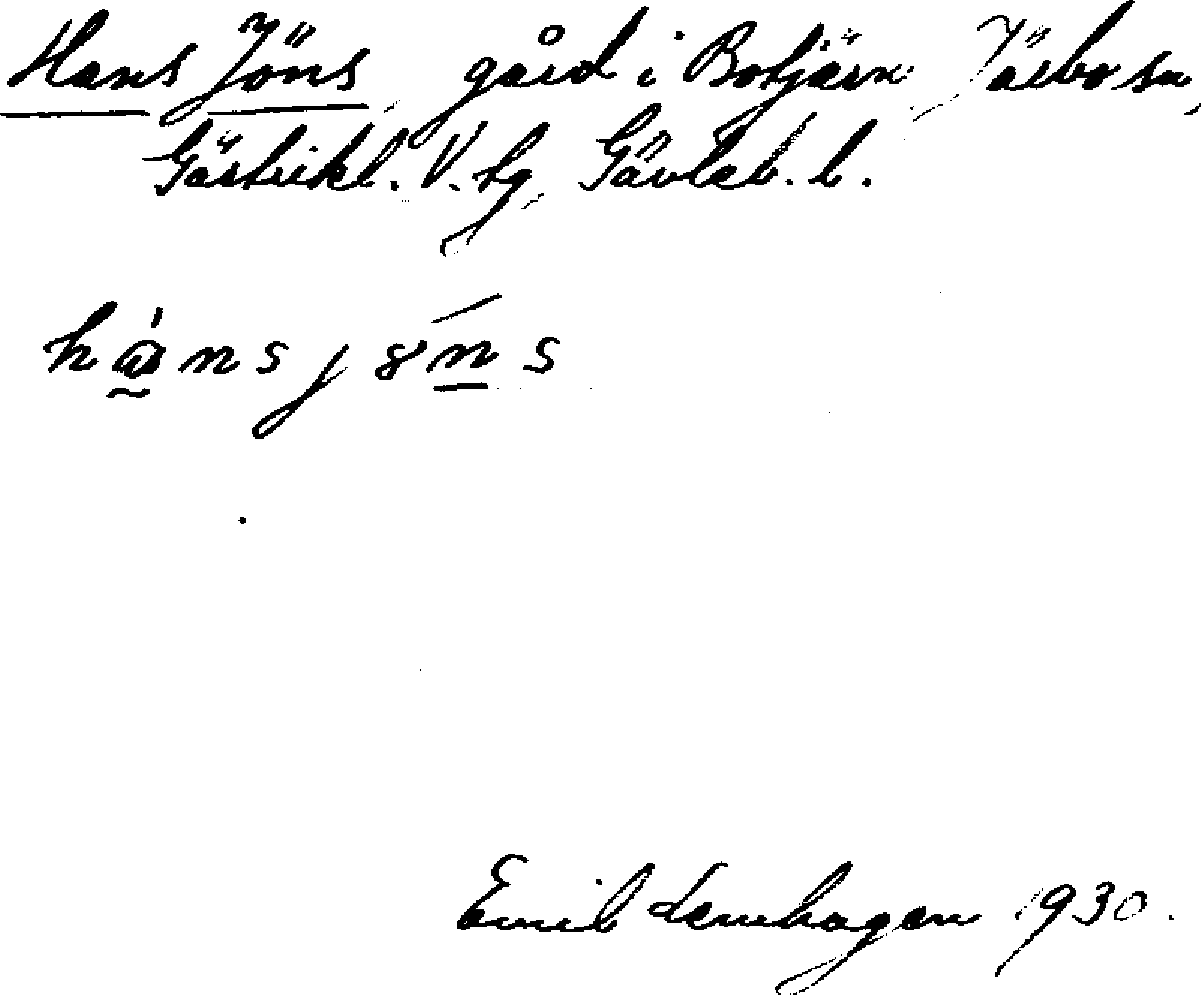 Hans Jöns, gård i Botjärn, Järbo sn,
Gästrikl. V. tg, Gävleb. l.
hansjöns
Emil Lenhagen 1930.